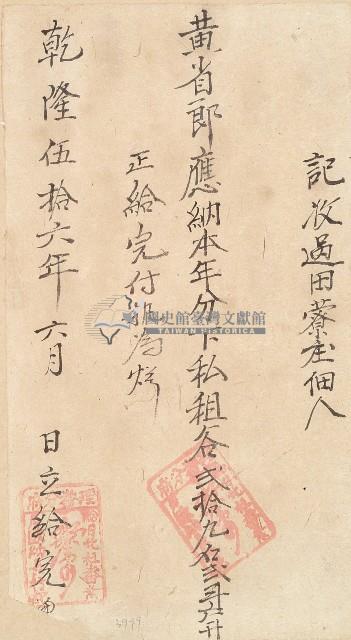 記收過田藔庄佃人
黃省郎應納本年分下私租谷弍拾九石弍斗五升
正給完付執為炤
乾隆伍拾六年六月 日立給完
國史館臺灣文獻館
TAIWAN HISTORICA
3947